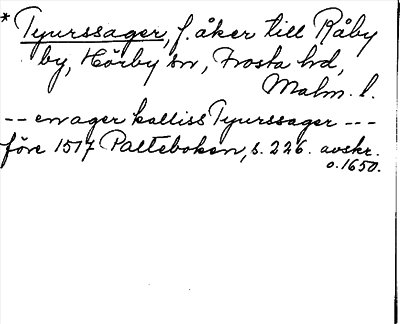 * Tyurssager, f. åker till Råby
by, Hörby sn, Frosta hd,
Malm. l.
-- en ager kalliss Tyurssager ---
före 1517 Palteboken, s. 226. avskr.
o. 1650.